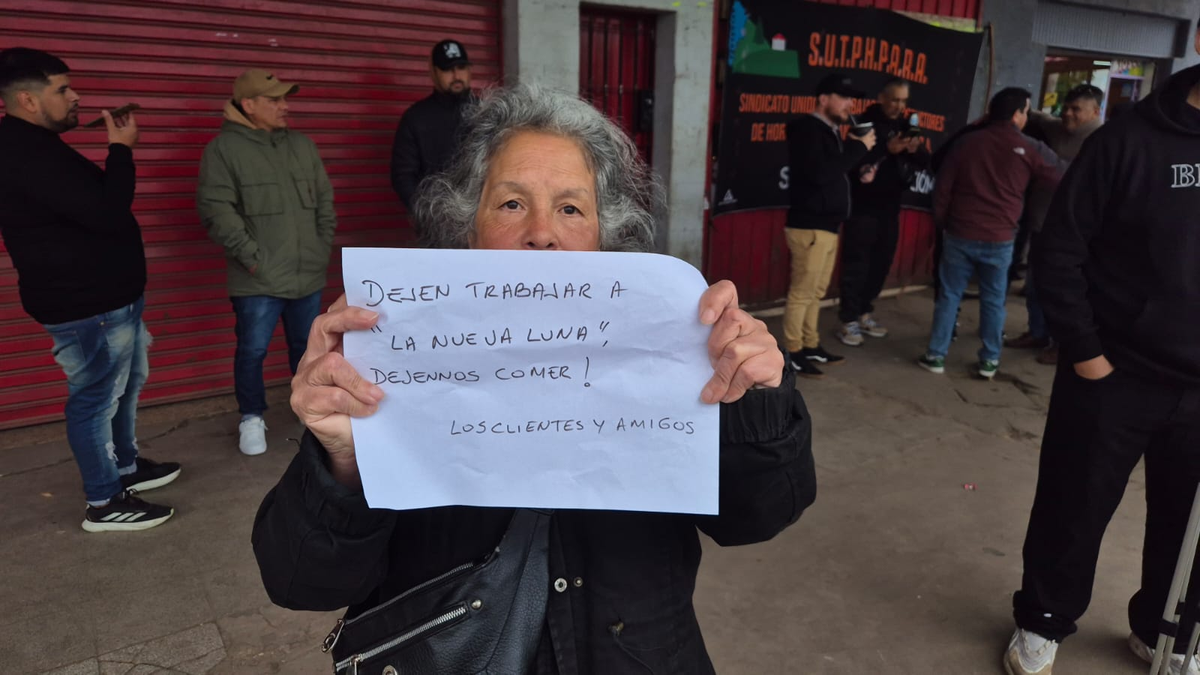 S.U.T.P.H.P.A.R.A.
SINDICATO UNI
DE HOR
DEJEN TRABAJAR A
"LA NUEVA LUNA",
DEJENNOS COMER!
LOS CLIENTES Y AMIGOS